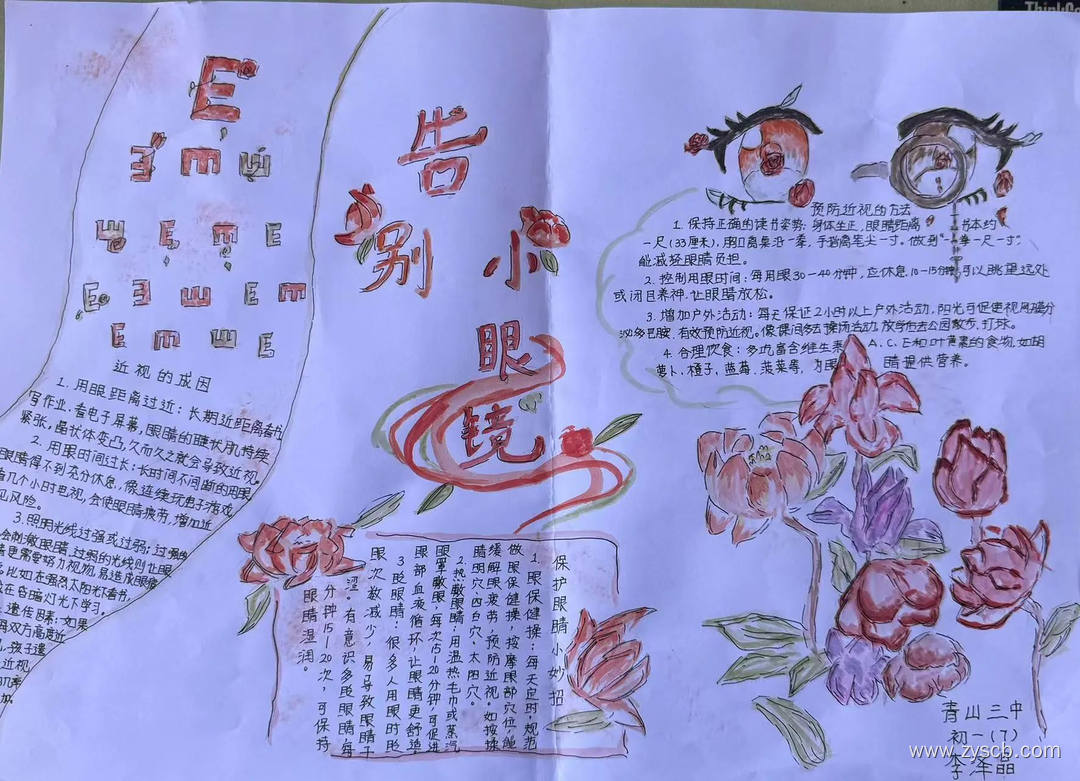 ThinkC
E
告别小眼镜
近视的成因
1. 用眼距离过近：长期近距离看书
写作业、看电子屏幕，眼睛的睫状肌持续
紧张，晶状体变凸，久而久之就会导致近视。
2. 用眼时间过长：长时间不间断的用眼
眼睛得不到充分休息，像连续玩电子游戏
着几个小时电视，会使眼睛疲劳，增加近
见风险。
3. 照明光线过强或过弱：过强的
会刺激眼睛，过弱的光线则让眼
睛更需要努力视物，易造成眼疲
比如在强烈太阳光下看书，
或在昏暗灯光下学习。
遗传因素：如果
母双方高度近
孩子遗
近视
预防近视的方法
1. 保持正确的读书姿势：身体坐正，眼睛距离书本约
一尺（33厘米），胸口离桌沿一拳，手指离笔尖一寸。做到“一拳一尺一寸”
能减轻眼睛负担。
2. 控制用眼时间：每用眼30—40分钟，应休息10—15分钟，可以眺望远处
或闭目养神，让眼睛放松。
3. 增加户外活动：每天保证2小时以上户外活动，阳光可促使视网膜分
泌多巴胺，有效预防近视。像课间多去操场活动，放学后去公园散步、打球。
4. 合理饮食：多吃富含维生素A、C、E和叶黄素的食物，如胡
萝卜、橙子、蓝莓、菠菜等，为眼睛提供营养。
保护眼睛小妙招
1. 眼保健操：每天定时，规范
做眼保健操，按摩眼部穴位，能
缓解眼疲劳，预防近视。如按揉
睛明穴、四白穴、太阳穴。
2. 热敷眼睛：用温热毛巾或蒸汽
眼罩敷眼，每次15—20分钟，可促进
眼部血液循环，让眼睛更舒适。
3. 眨眼睛：很多人用眼时眨
眼次数减少，易导致眼睛干
涩。有意识多眨眼睛，每
分钟15—20次，可保持
眼睛湿润。
青山三中
初一(7)
李泽晶
www.zyscb.com